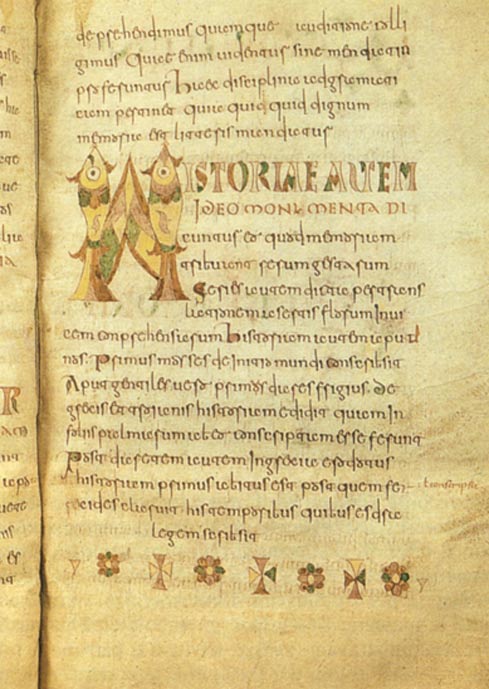 deprehendimus quam que auditione colli
gimus Quae enim uidentur sine mendacio
proferuntur haec disciplina ad gramati
cam pertinet quia quid quid dignum
memoria est litteris mandatur
HISTORIAE AUTEM
IDEO MONUMENTA DI
cuntur eo quod memoriam
tribuant rerum gestarum
Series autem dicta per trans
lationem a sertis florum inui
cem conprehensarum historiam autem aput
nos. primus moses de initio mundi conscribsit
Aput gentiles uero primus dares frigius de
grecis et troianis historiam edidit quam in
foliis palmarum ab eo conscriptam esse ferunt
Post daretem autem in grecia erodotus
historiam primus abitus est post quem fe
recides claruit his temporibus quibus esdras
legem scribsit